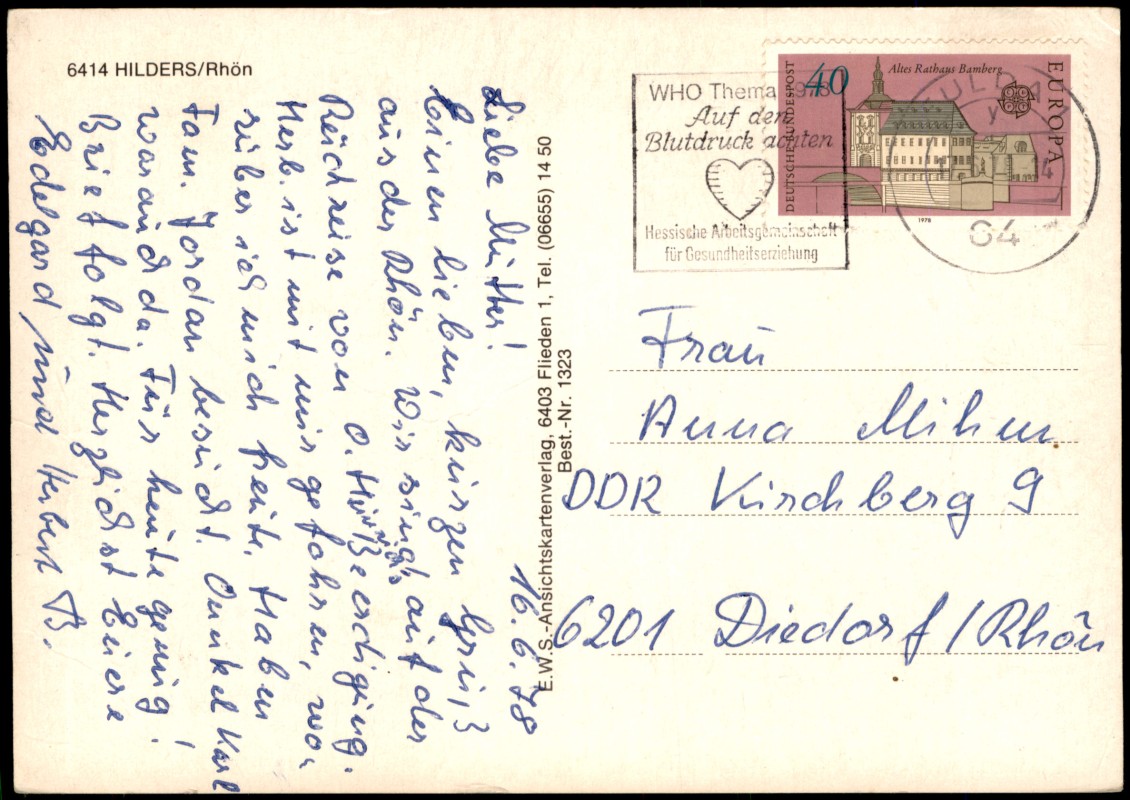 6414 HILDERS/Rhön
16.6.78
Liebe Mutter!
Einen lieben, kurzen Gruß
aus der Rhön. Wir sind auf der
Rückreise von O. Beerdigung.
Herb. ist mit mir gefahren, wo-
rüber ich mich freute. Haben
Fam. Jordan besucht. Onkel Karl
war auch da. Für heute genug!
Brief folgt. Herzlichst Eure
Edelgard und Herbert B.
E.W.S.-Ansichtskartenverlag, 6403 Flieden 1, Tel. (06655) 14 50
Best.-Nr. 1323
WHO Thema 1978
Auf den
Blutdruck achten
Hessische Arbeitsgemeinschaft
für Gesundheitserziehung
DEUTSCHE BUNDESPOST
40
Altes Rathaus Bamberg
EUROPA
1978
FULDA
64
Frau
Anna Mihm
DDR Kirchberg 9
6201 Diedorf/Rhön